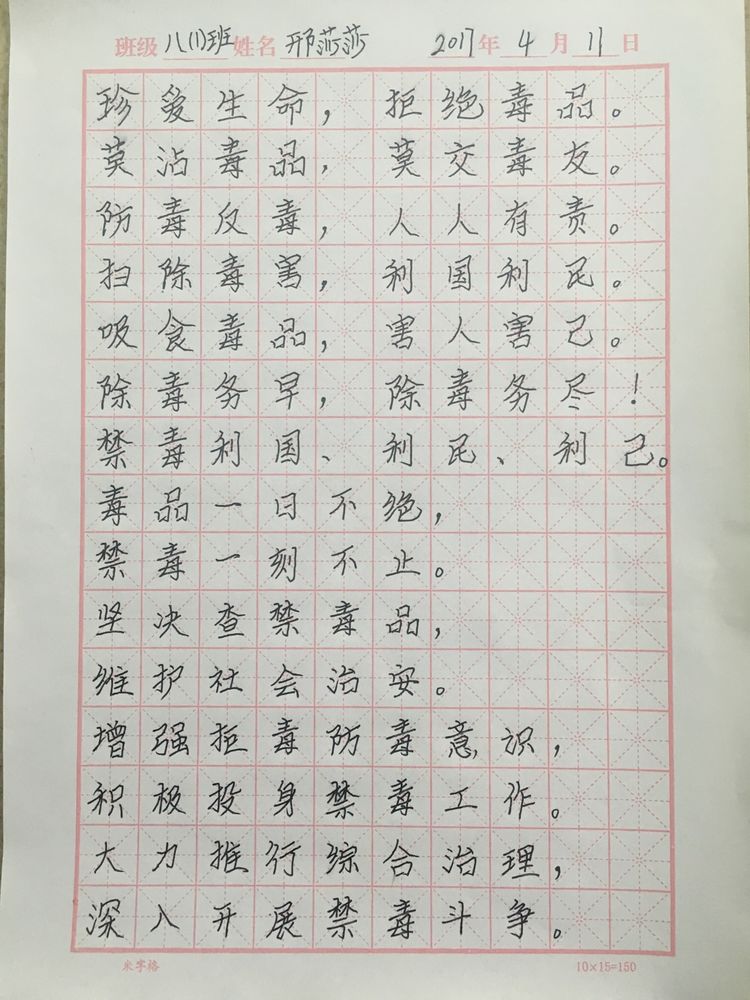 班级 八(1)班 姓名 邢莎莎 2017年 4月 11日
珍爱生命，拒绝毒品。
莫沾毒品，莫交毒友。
防毒反毒，人人有责。
扫除毒害，利国利民。
吸食毒品，害人害己。
除毒务早，除毒务尽！
禁毒利国、利民、利己。
毒品一日不绝，
禁毒一刻不止。
坚决查禁毒品，
维护社会治安。
增强拒毒防毒意识，
积极投身禁毒工作。
大力推行综合治理，
深入开展禁毒斗争。
米字格 10×15=150